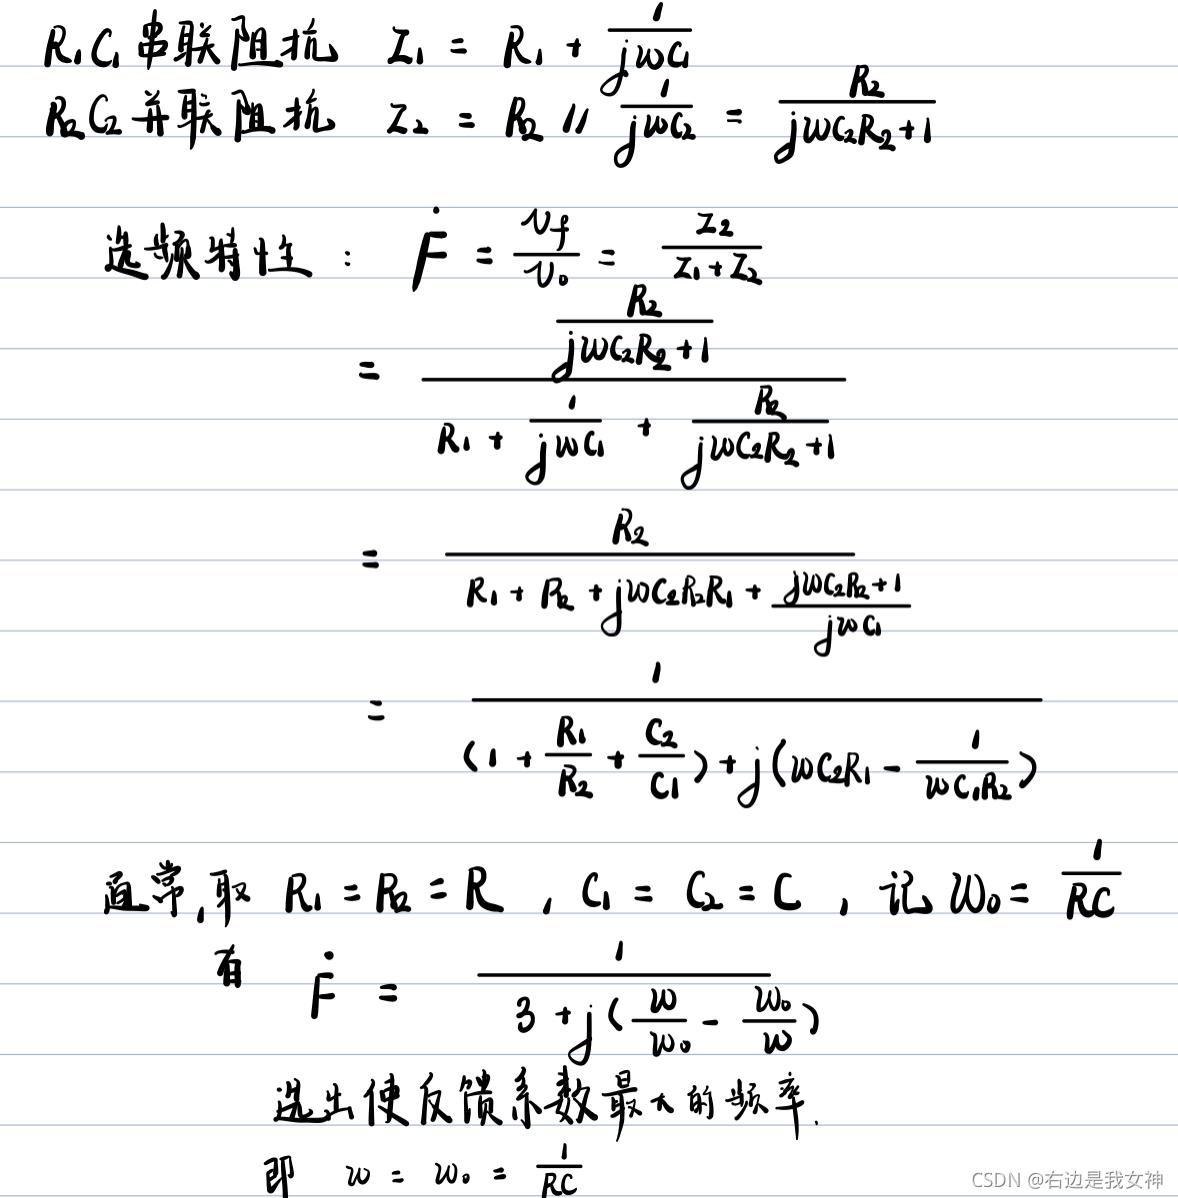 R₁C₁串联阻抗 Z₁ = R₁ + 1/(jωC₁)
R₂C₂并联阻抗 Z₂ = R₂ // 1/(jωC₂) = R₂/(jωC₂R₂+1)
选频特性: Ḟ = v_f/v₀ = Z₂/(Z₁+Z₂)
= (R₂/(jωC₂R₂+1))/(R₁ + 1/(jωC₁) + R₂/(jωC₂R₂+1))
= R₂/(R₁ + R₂ + jωC₂R₂R₁ + (jωC₂R₂+1)/(jωC₁))
= 1/((1 + R₁/R₂ + C₂/C₁) + j(ωC₂R₁ - 1/(ωC₁R₂)))
通常,取 R₁ = R₂ = R , C₁ = C₂ = C , 记 ω₀ = 1/(RC)
有 Ḟ = 1/(3 + j(ω/ω₀ - ω₀/ω))
选出使反馈系数最大的频率.
即 ω = ω₀ = 1/(RC)
CSDN @右边是我女神